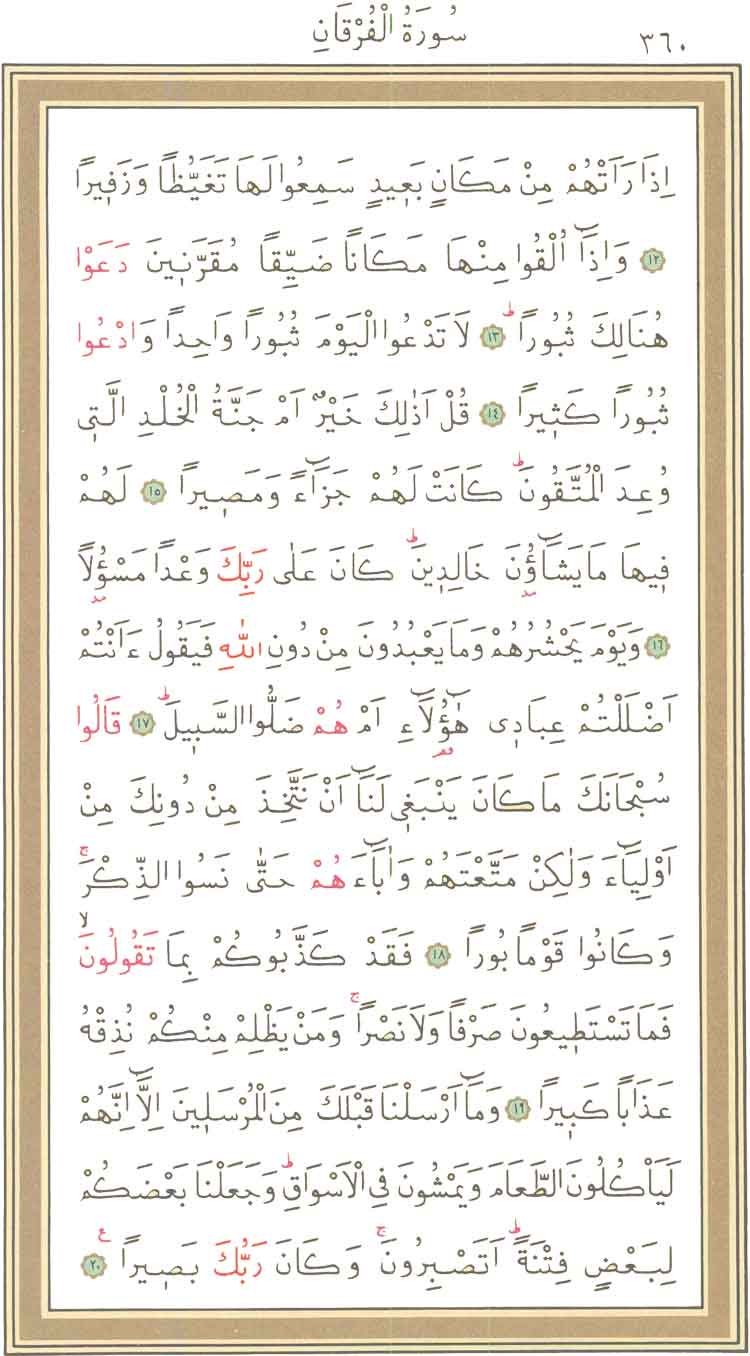 ٣٦٠
سُورَةُ الْفُرْقَانِ
اِذَا رَاَتْهُمْ مِنْ مَكَانٍ بَعٖيدٍ سَمِعُوا لَهَا تَغَيُّظًا وَزَفٖيرًا
﴿١٢﴾ وَاِذَٓا اُلْقُوا مِنْهَا مَكَانًا ضَيِّقًا مُقَرَّنٖينَ دَعَوْا
هُنَالِكَ ثُبُورًاؕ ﴿١٣﴾ لَا تَدْعُوا الْيَوْمَ ثُبُورًا وَاحِدًا وَادْعُوا
ثُبُورًا كَثٖيرًا ﴿١٤﴾ قُلْ اَذٰلِكَ خَيْرٌ اَمْ جَنَّةُ الْخُلْدِ الَّتٖى
وُعِدَ الْمُتَّقُونَؕ كَانَتْ لَهُمْ جَزَٓاءً وَمَصٖيرًا ﴿١٥﴾ لَهُمْ
فٖيهَا مَا يَشَٓاؤُ۫نَ خَالِدٖينَؕ كَانَ عَلٰى رَبِّكَ وَعْدًا مَسْؤُ۫لًا
﴿١٦﴾ وَيَوْمَ يَحْشُرُهُمْ وَمَا يَعْبُدُونَ مِنْ دُونِ اللّٰهِ فَيَقُولُ ءَاَنْتُمْ
اَضْلَلْتُمْ عِبَادٖى هٰٓؤُ۬لَٓاءِ اَمْ هُمْ ضَلُّوا السَّبٖيلَؕ ﴿١٧﴾ قَالُوا
سُبْحَانَكَ مَا كَانَ يَنْبَغٖى لَنَٓا اَنْ نَتَّخِذَ مِنْ دُونِكَ مِنْ
اَوْلِيَٓاءَ وَلٰكِنْ مَتَّعْتَهُمْ وَاٰبَٓاءَهُمْ حَتّٰى نَسُوا الذِّكْرَۚ
وَكَانُوا قَوْمًا بُورًا ﴿١٨﴾ فَقَدْ كَذَّبُوكُمْ بِمَا تَقُولُونَۙ
فَمَا تَسْتَطٖيعُونَ صَرْفًا وَلَا نَصْرًاۚ وَمَنْ يَظْلِمْ مِنْكُمْ نُذِقْهُ
عَذَابًا كَبٖيرًا ﴿١٩﴾ وَمَٓا اَرْسَلْنَا قَبْلَكَ مِنَ الْمُرْسَلٖينَ اِلَّٓا اِنَّهُمْ
لَيَاْكُلُونَ الطَّعَامَ وَيَمْشُونَ فِى الْاَسْوَاقِؕ وَجَعَلْنَا بَعْضَكُمْ
لِبَعْضٍ فِتْنَةًؕ اَتَصْبِرُونَۚ وَكَانَ رَبُّكَ بَصٖيرًا ع ﴿٢٠﴾